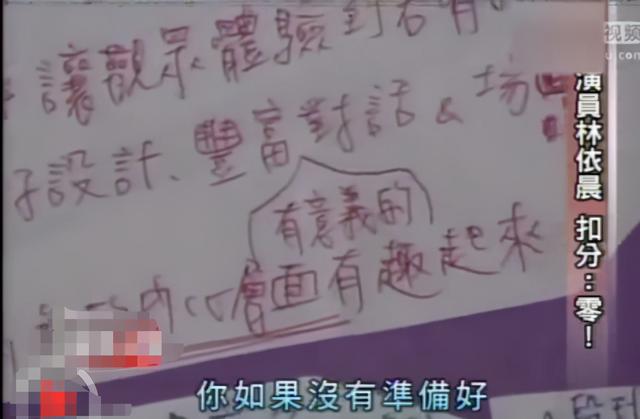 讓觀眾體驗到
設計、豐富對話 & 場
有意義的
內心層面有趣起來
演員林依晨 扣分:零!
你如果沒有準備好
视频